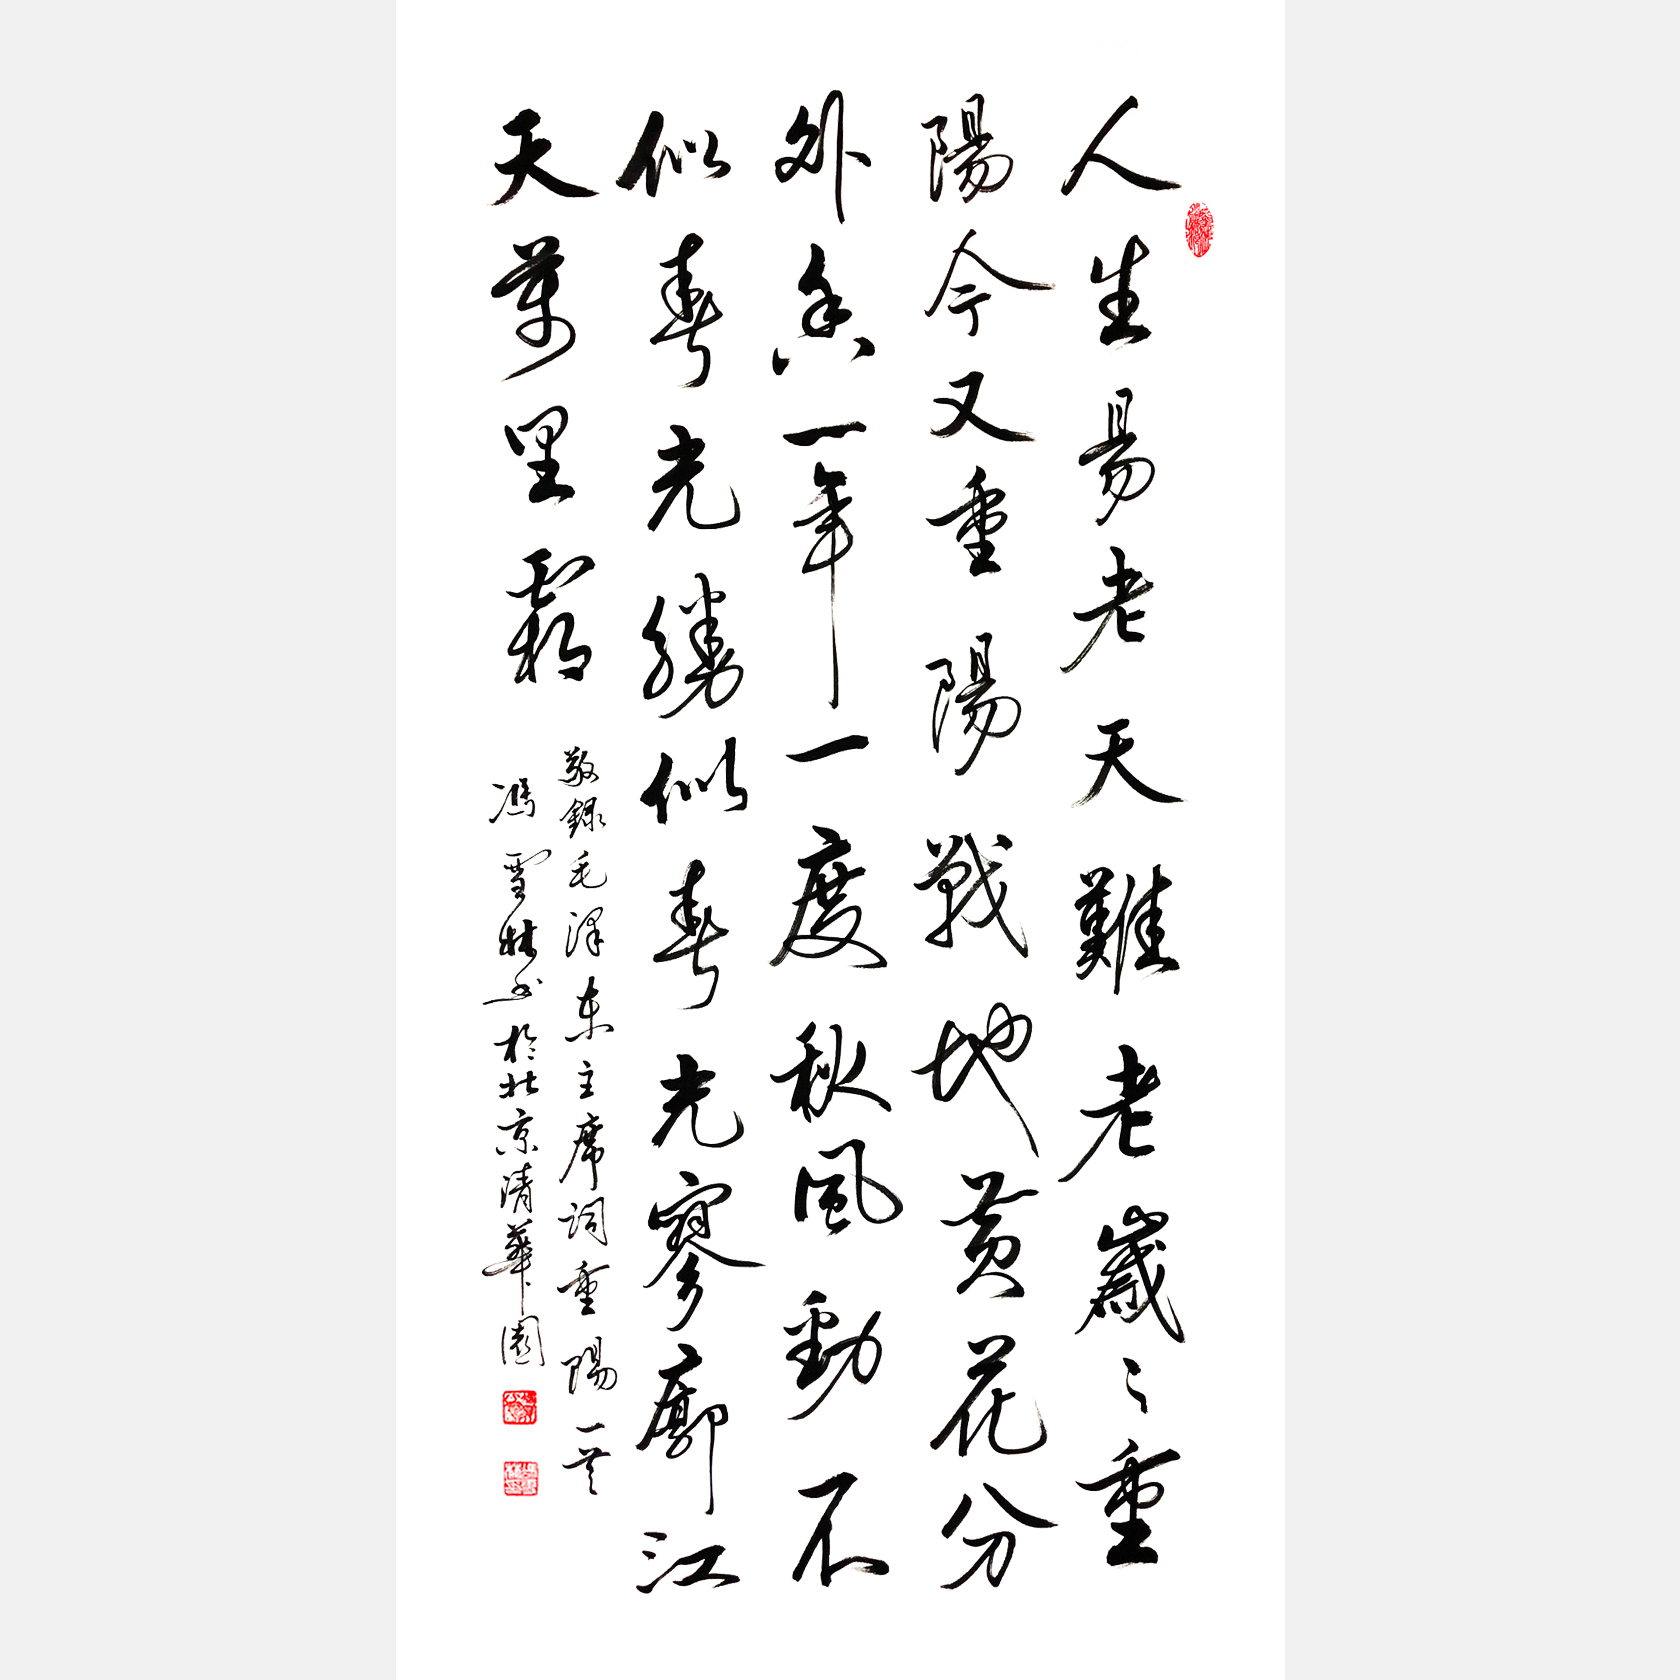 人生易老天難老歲〻重
陽今又重陽戰地黃花分
外香一年一度秋風勁不
似春光勝似春光寥廓江
天萬里霜
敬錄毛泽东主席詞重陽一首
馮雪林书於北京清華園